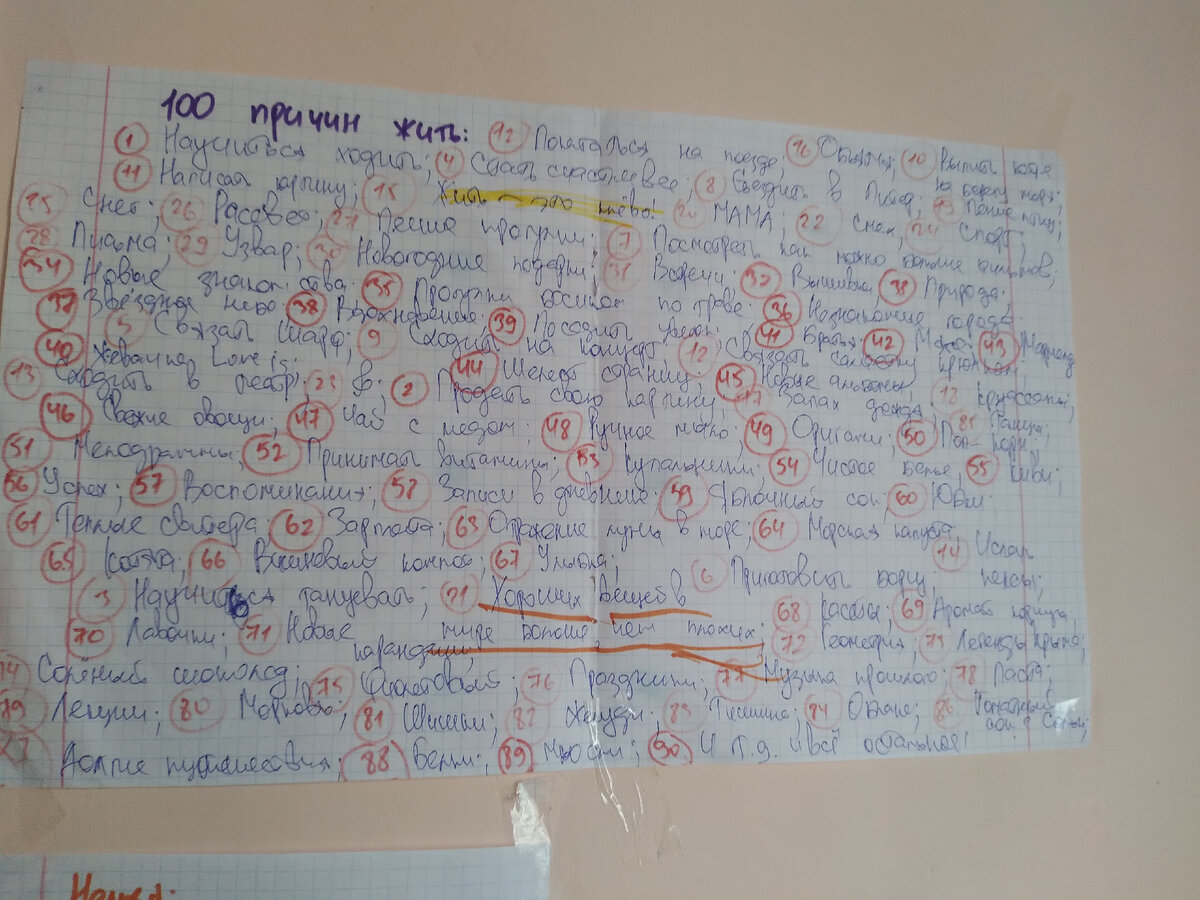 100 причин жить:
1 Научиться ходить; 4 Стать счастливее; 12 Покататься на поезде; 16 10 Выпить кофе на берегу моря;
11 Написать картину; 15 Жить – это клёво! 8 Съездить в Питер; 19 Пение птиц;
25 Снег; 26 Рассвет; 27 Пешие прогулки; 20 МАМА; 22 24 Спорт;
28 Письма; 29 Узвар; 30 Новогодние подарки; 7 Посмотреть как можно больше фильмов;
34 Новые знакомства; 35 Прогулки босиком по траве; 31 Встречи; 32 Вышивка; 33 Природа;
37 Звёздное небо; 38 Вдохновение; 39 Посадить 36 Незнакомые города;
5 Связать шарф; 9 Сходить на концерт; 12 Связать салфетку крючком; 41 Братья; 42 43 Мармелад
40 Жевачка Love is; 44 Шелест страниц; 45 Новые альбомы;
13 Сходить в театр; 23 2 Продать свою картину; 17 Запах дождя; 18 Круассаны;
46 Свежие овощи; 47 Чай с мёдом; 48 49 Оригами; 50 Поп-корн; 85
51 Мелодрамы; 52 Принимать витамины; 53 Купальники; 54 Чистое белье; 55 Киви;
56 Успех; 57 Воспоминания; 58 Записи в дневнике; 59 Яблочный сок; 60
61 Теплые свитера; 62 Зарплата; 63 Отражение луны в море; 64 Морская капуста;
65 66 Вишневый компот; 67 Улыбка; 6 Приготовить борщ; 14
3 Научиться танцевать; 21 Хороших вещей в мире больше чем плохих; 68 69 Аромат
70 Лавочки; 71 Новые карандаши; 72 Геометрия; 73 Легенды Крыма;
74 Солёный шоколад; 75 Фиолетовый; 76 Праздники; 77 Музыка прошлого; 78 Паста;
79 Лекции; 80 Морковь; 81 Шишки; 82 Желуди; 83 Тишина; 84 Облака; 86 Томатный сок с солью;
Долгие путешествия; 88 89 Мюсли; 90 И т.д. и всё остальное!